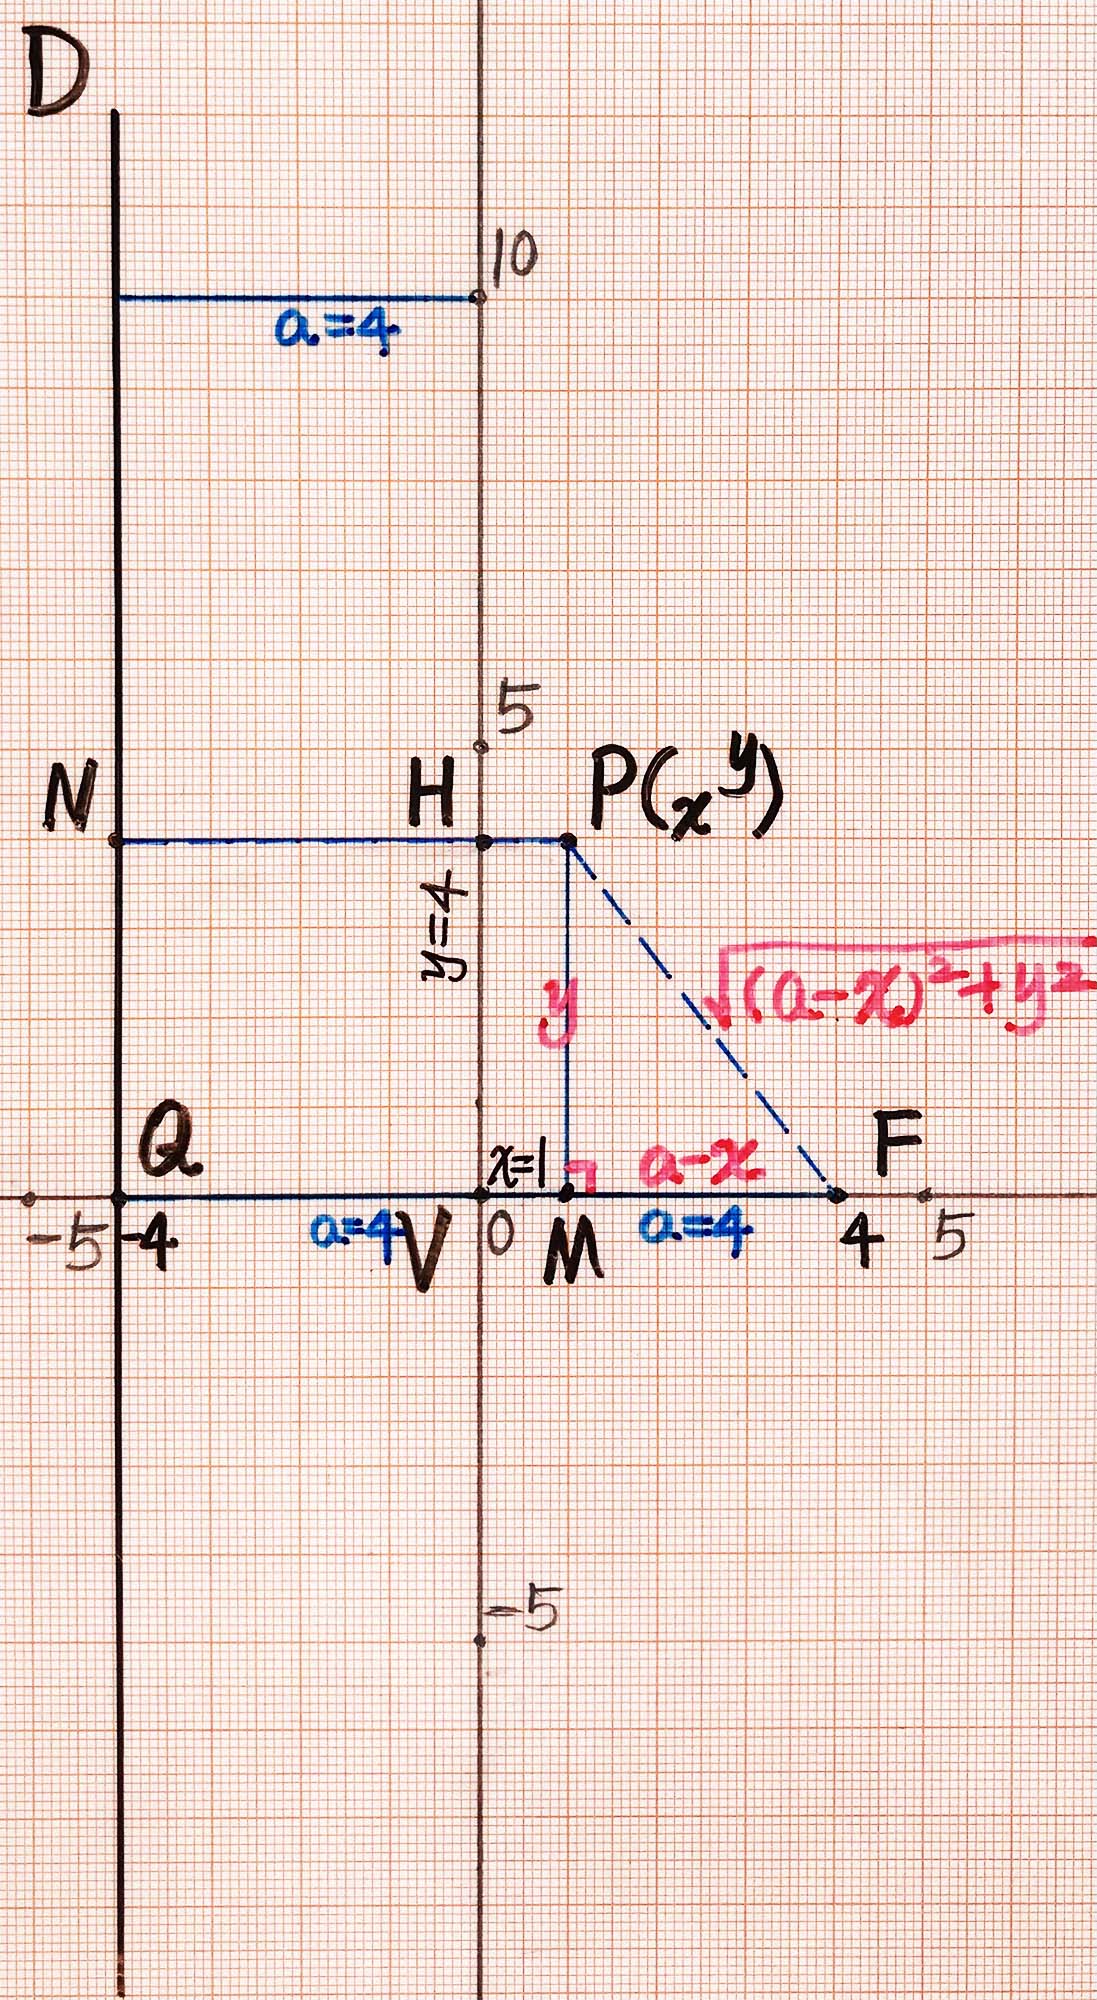 D
10
a=4
5
N
H
P(x y)
y=4
y
√(a-x)²+y²
Q
x=1
a-x
F
-5
-4
a=4
V
0
M
a=4
4
5
-5